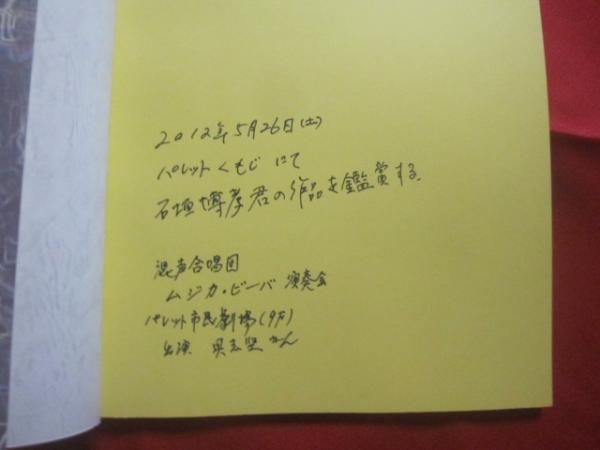 2012年5月26日(土)
パレットくもじ にて
石垣博孝君の作品を鑑賞する
混声合唱団
ムジカ・ビーバ 演奏会
パレット市民劇場(9F)
出演 具志堅 さん